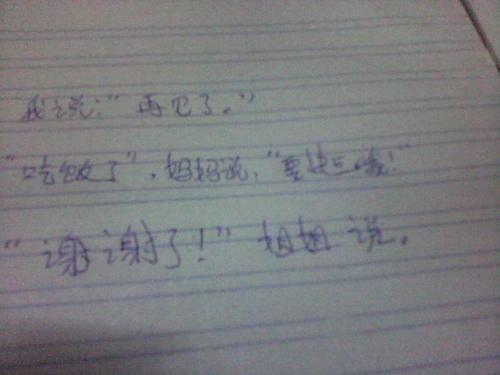 我说:“再见了。”
“吃饭了”,妈妈说,“要快点哦!”
“谢谢了!”姐姐说。